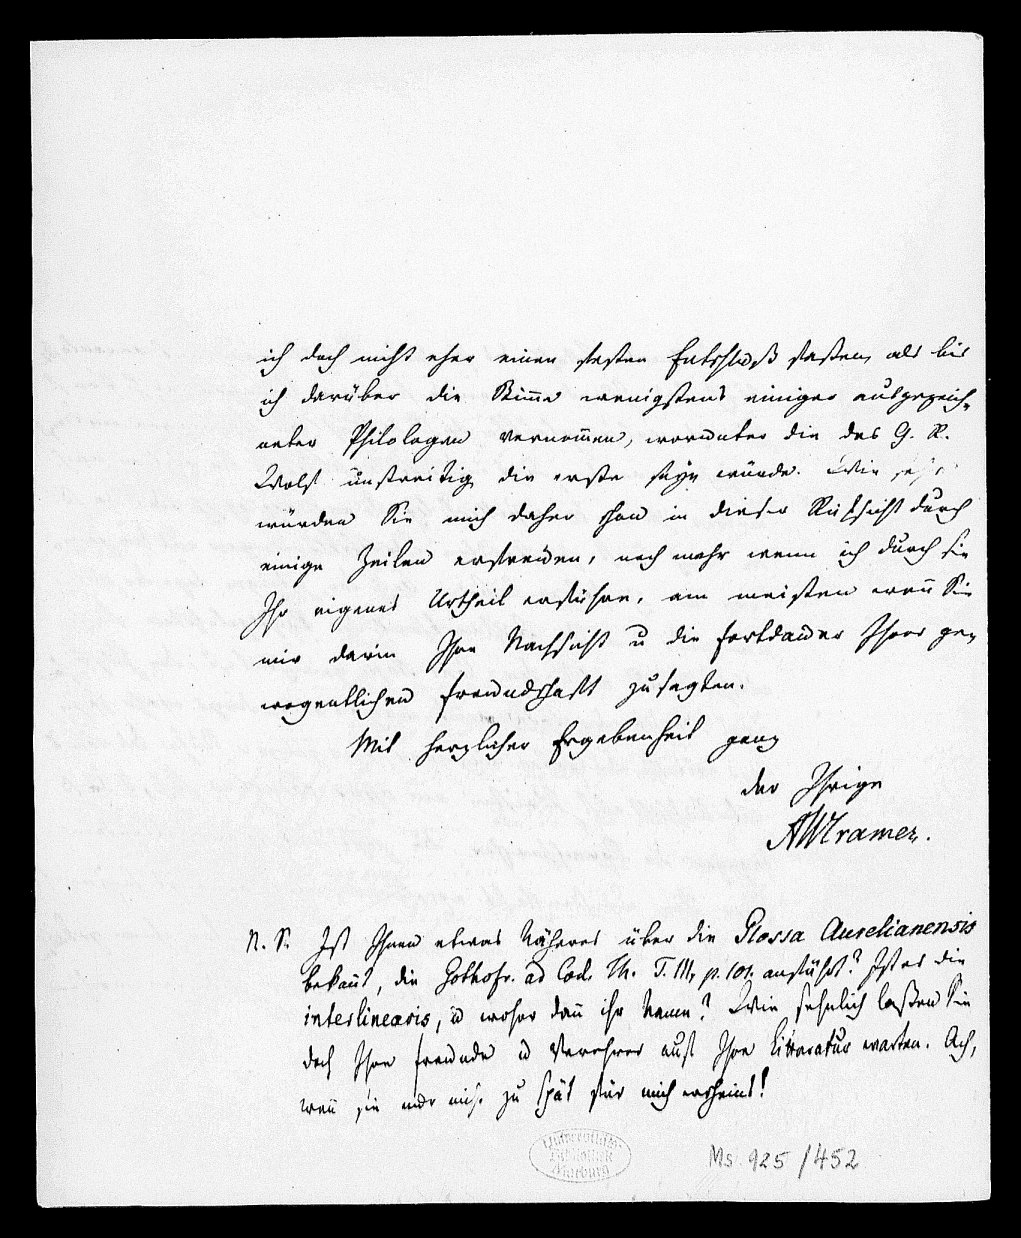 ich doch nicht eher einen festen Entschluß fassen, als bis
ich darüber die Stimme wenigstens einiger ausgezeich-
neter Philologen vernommen, worunter die des G. R.
Wolf unstreitig die erste seyn würde. Wie sehr
würden Sie mich daher schon in dieser Rücksicht durch
einige Zeilen erfreuen, noch mehr wenn ich durch sie
Ihr eigenes Urtheil erführe, am meisten wen̄ Sie
mir darin Ihre Nachsicht u die Fortdauer Ihrer ge-
wogentlichen Freundschaft zusagten.
Mit herzlicher Ergebenheit ganz
der Ihrige
AWCramer.
N. S. Ist Ihnen etwas Näheres über die Glossa Aurelianensis
bekan̄t, die Gothofr. ad Cod. Th. T. III, p. 101. anführt? Ist es die
interlinearis, u woher dan̄ ihr Name? Wie sehnlich laßen Sie
doch Ihre Freunde u Verehrer auf Ihre Litteratur warten. Ach,
wen̄ sie nur nicht zu spät für mich erscheint!
Universitäts-
Bibliothek
Marburg
Ms. 925/452